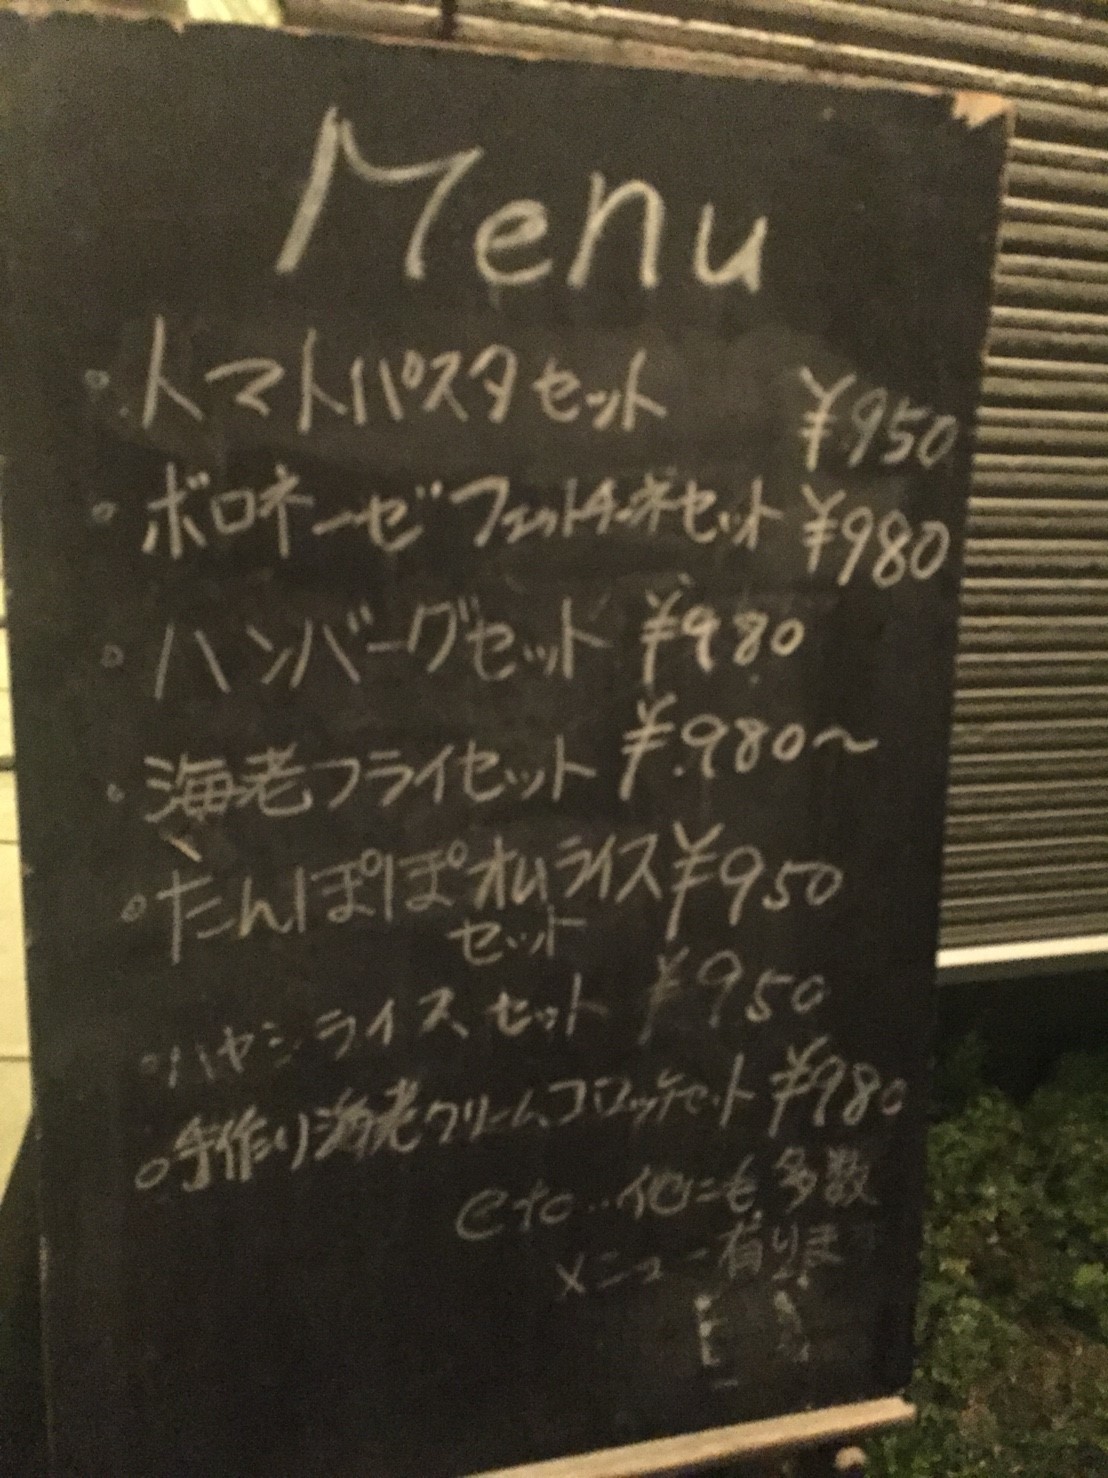 Menu
トマトパスタセット ¥950
ボロネーゼフェットチーネセット ¥980
ハンバーグセット ¥980
海老フライセット ¥980〜
たんぽぽオムライス ¥950
セット
ハヤシライスセット ¥950
手作り海老クリームコロッケセット ¥980
etc..他にも多数
メニュー有りま